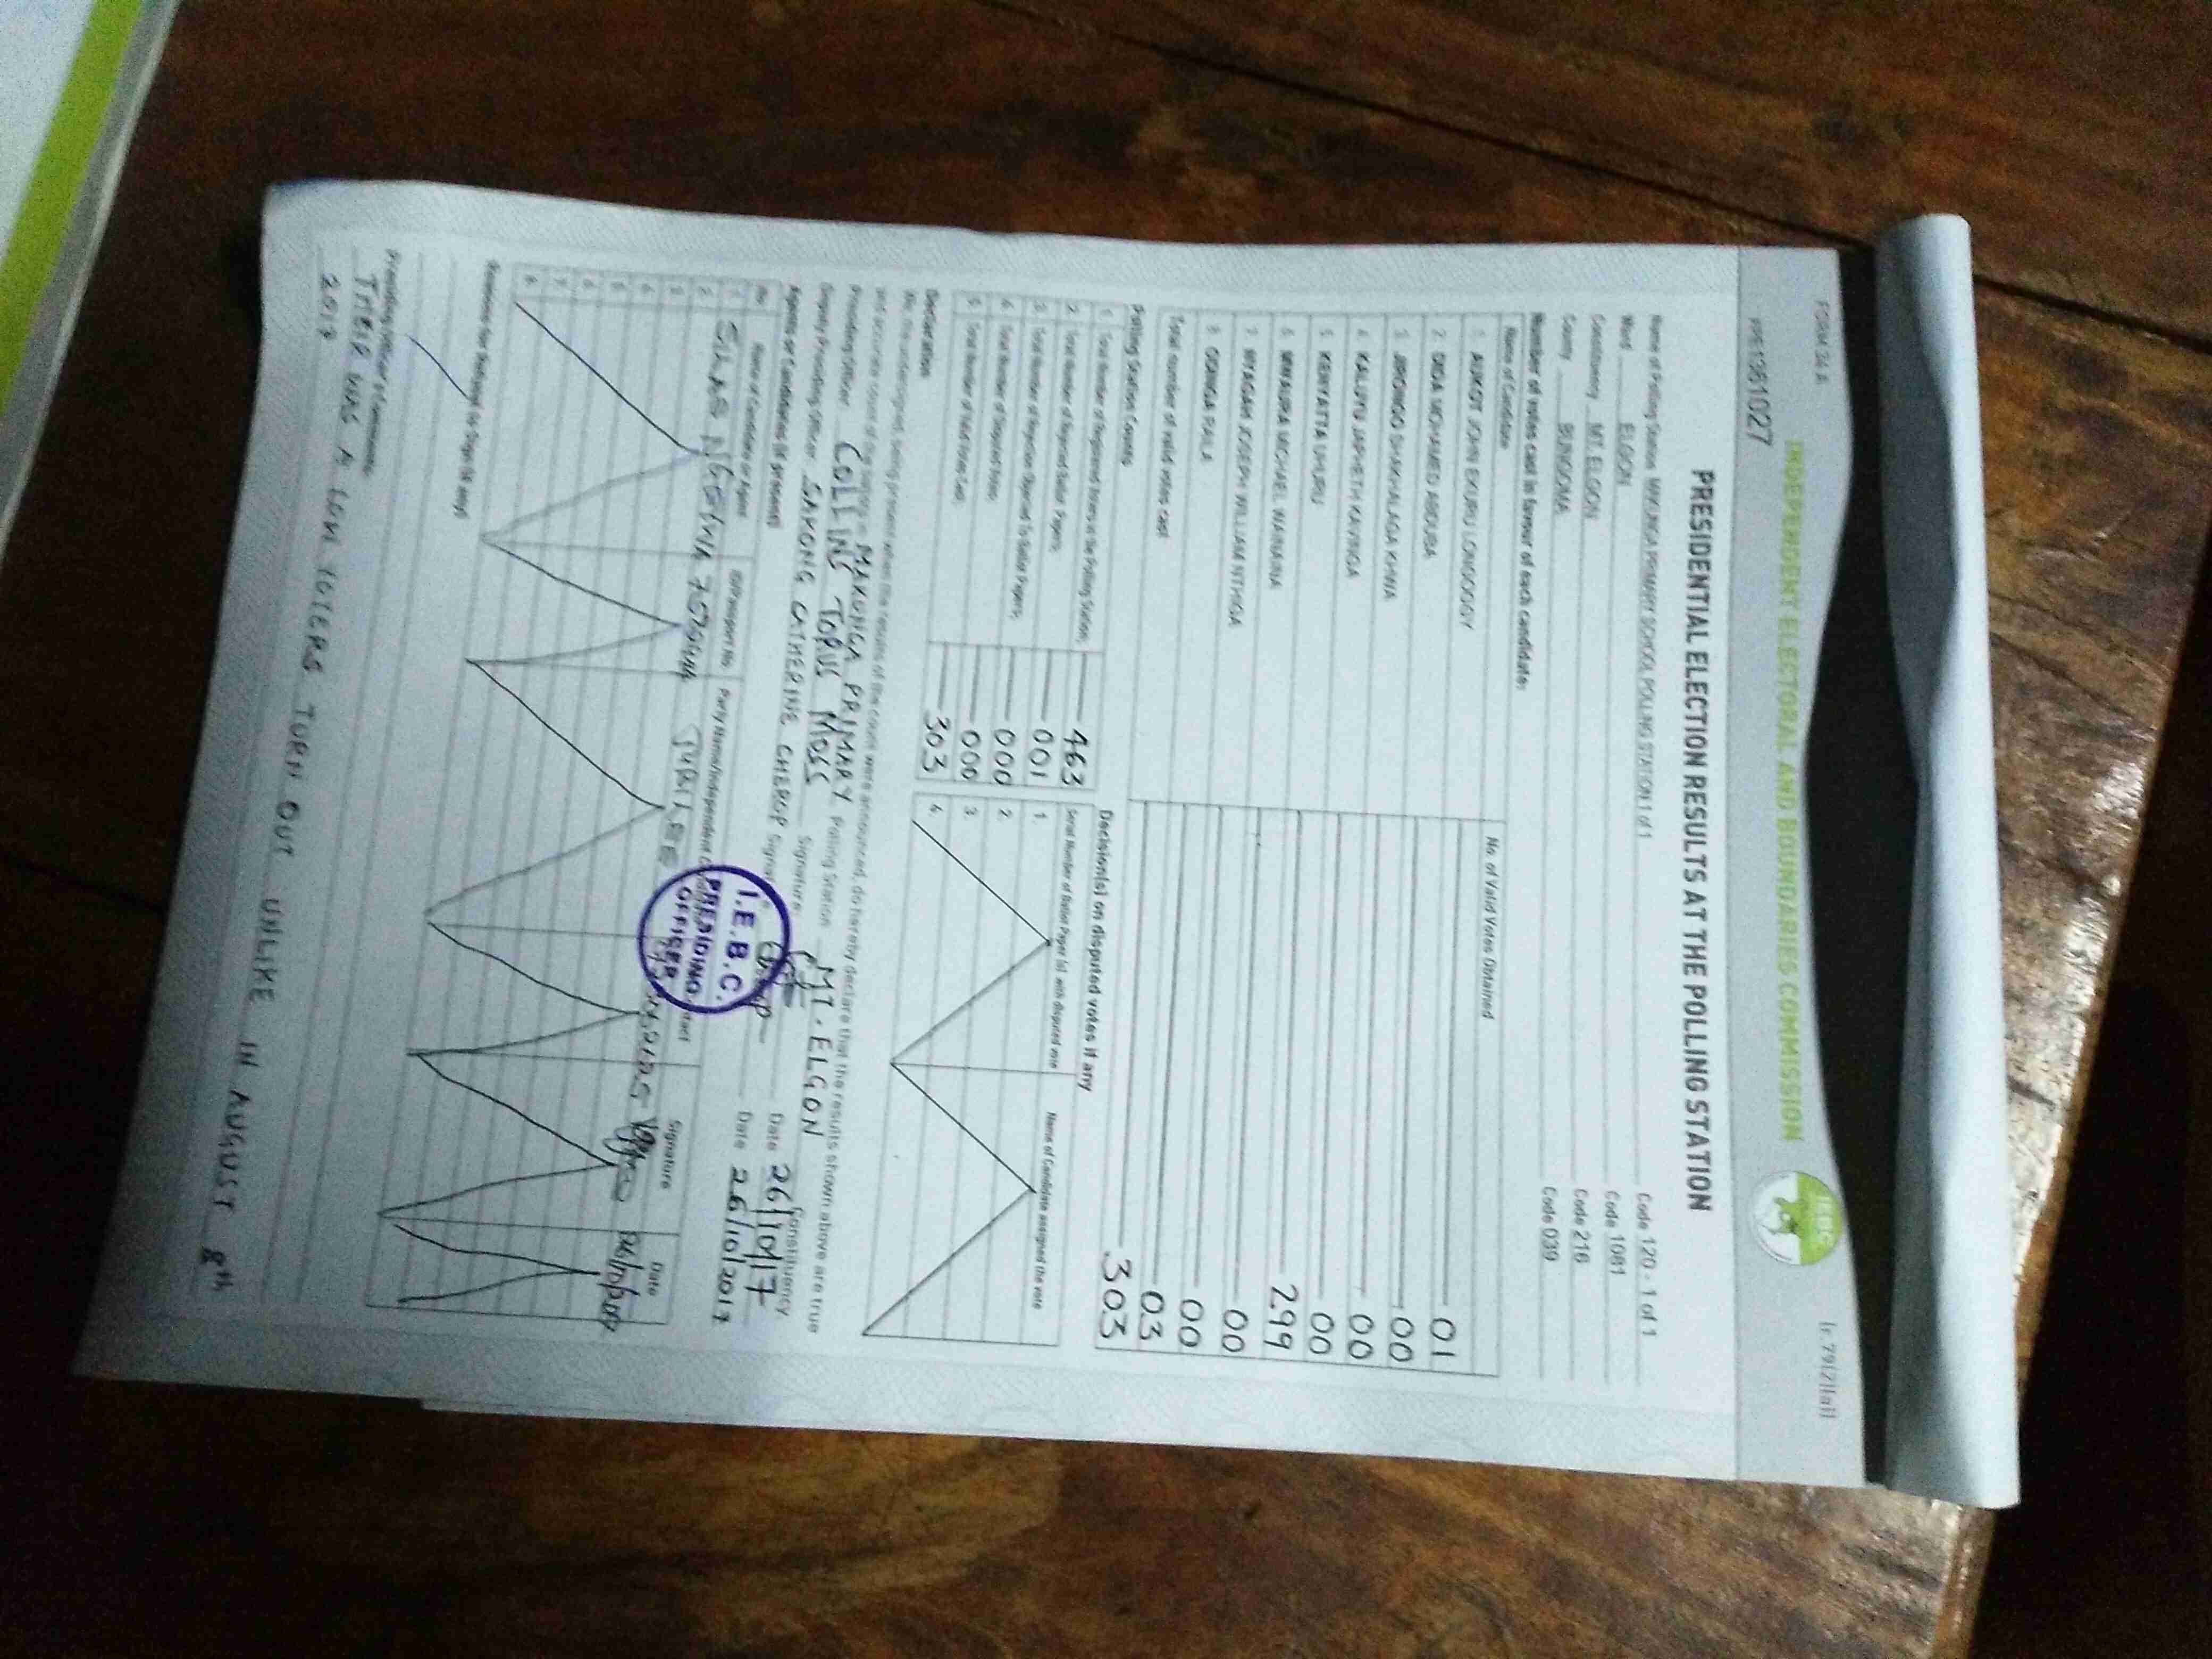 FORM 34 A
INDEPENDENT ELECTORAL AND BOUNDARIES COMMISSION
IEBC
PRESIDENTIAL ELECTION RESULTS AT THE POLLING STATION
Name of Polling Station PRIMARY SCHOOL POLLING STATION 1 of 1 Code 120 - 1 of 1
Ward ELGON Code 1081
Constituency MT. ELGON Code 216
County BUNGOMA Code 039
Number of votes cast in favour of each candidate:
Name of Candidate No. of Valid Votes Obtained
1. AUKOT JOHN EKURU LONGOGGY 01
2. DIDA MOHAMED ABDUBA 00
3. JIRONGO SHAKHALAGA KHWA 00
4. KALUYU JAPHETH KAVINGA 00
5. KENYATTA UHURU 299
6. MWAURA MICHAEL WAINAINA 00
7. NYAGAH JOSEPH WILLIAM NTHIGA 00
8. ODINGA RAILA 03
Total number of valid votes cast 303
Polling Station Counts
1. Total Number of Registered Voters in the Polling Station; 463
2. Total Number of Rejected Ballot Papers; 001
3. Total Number of Rejection Objected To Ballot Papers; 000
4. Total Number of Disputed Votes; 000
5. Total Number of Valid Votes Cast; 303
Decision(s) on disputed votes if any
Serial Number of Ballot Paper (s) with disputed vote Name of Candidate assigned the vote
1.
2.
3.
4.
Declaration
We, the undersigned, being present when the results of the count were announced, do hereby declare that the results shown above are true
and accurate count of the ballots in MAKUNGA PRIMARY Polling Station MT. ELGON Constituency
Presiding Officer COLLINS TORUS MOSS Signature Date 26/10/17
Deputy Presiding Officer SAKONG CATHERINE CHEROP Signature Date 26/10/2017
I.E.B.C.
PRESIDING
OFFICER
Agents or Candidates (if present)
No. Name of Candidate or Agent ID/Passport No. Party Name/Independent Signature Date
1. SILAS JUBILEE
2.
3.
4.
5.
6.
7.
8.
Reasons for Refusal to Sign (if any)
Presiding officer's comments:
THERE WAS A LOW VOTERS TURN OUT UNLIKE IN AUGUST 8th
2017